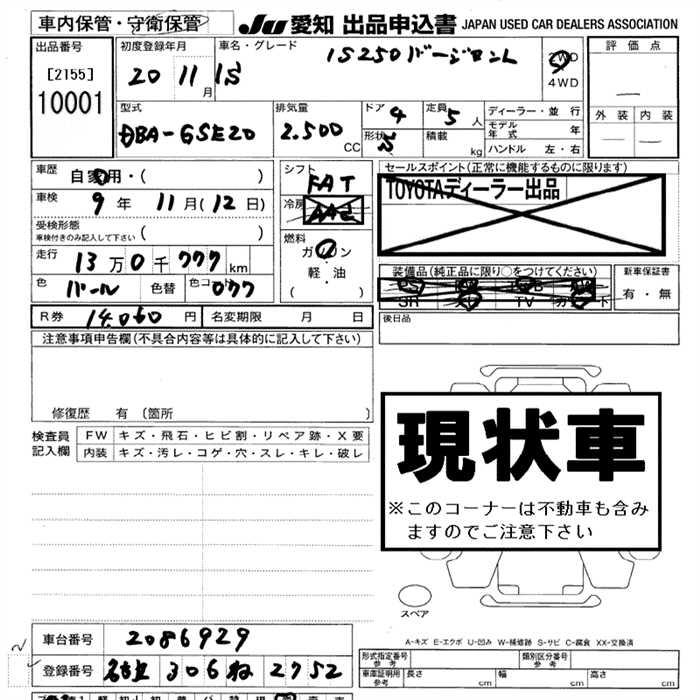 車内保管・守衛保管
JU 愛知 出品申込書 JAPAN USED CAR DEALERS ASSOCIATION
出品番号
[2155]
10001
初度登録年月
20 11月
車名・グレード
IS250バージョンL
IS
2WD
4WD
評価点
外装 内装
型式
DBA-GSE20
排気量
2.500 CC
ドア 4
形状
定員 5 人
積載 kg
ディーラー・並行
モデル年式 年
ハンドル 左・右
車歴
自家用・( )
車検 9年 11月(12日)
受検形態
車検付きのみ記入して下さい ( )
走行 13万0千777km
色 パール 色替 色コード 077
シフト
FAT
冷房
AAC
燃料
ガソリン
軽・油
( )
セールスポイント(正常に機能するものに限ります)
TOYOTAディーラー出品
装備品(純正品に限り○をつけてください)
PS
SR TV
新車保証書
有・無
R券 14,060円 名変期限 月 日
後日品
注意事項申告欄(不具合内容等は具体的に記入して下さい)
修復歴 有 [箇所 ]
検査員記入欄
FW キズ・飛石・ヒビ割・リペア跡・X要
内装 キズ・汚レ・コゲ・穴・スレ・キレ・破レ
現状車
※このコーナーは不動車も含み
ますのでご注意下さい
スペア
A-キズ E-エクボ U-凹み W-補修跡 S-サビ C-腐食 XX-交換済
車台番号 2086929
登録番号 名古屋 306 ね 2752
形式指定番号 参考
類別区分番号 参考
車庫証明用 参考 長さ cm 幅 cm 高さ cm